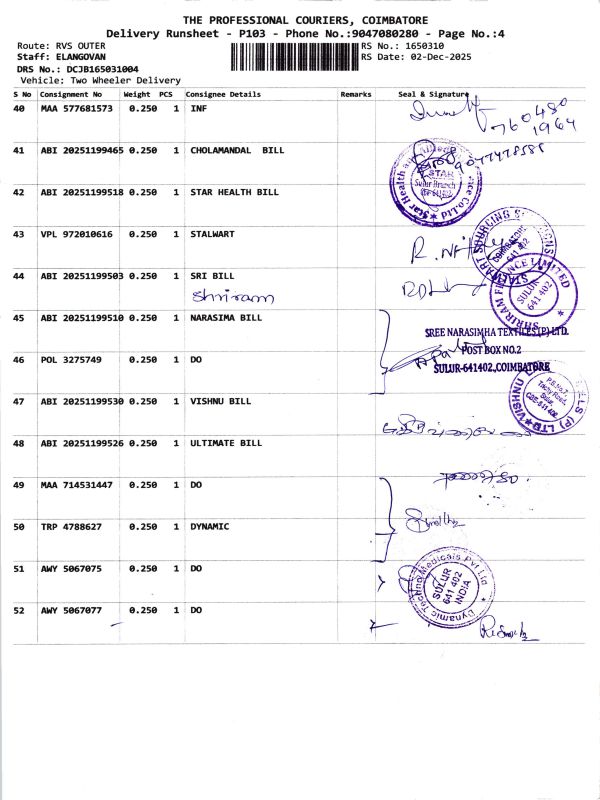 THE PROFESSIONAL COURIERS, COIMBATORE
Delivery Runsheet - P103 - Phone No.:9047080280 - Page No.:4
Route: RVS OUTER RS No.: 1650310
Staff: ELANGOVAN RS Date: 02-Dec-2025
DRS No.: DCJB165031004
Vehicle: Two Wheeler Delivery
S No Consignment No Weight PCS Consignee Details Remarks Seal & Signature
40 MAA 577681573 0.250 1 INF
41 ABI 20251199465 0.250 1 CHOLAMANDAL BILL
42 ABI 20251199518 0.250 1 STAR HEALTH BILL
STAR
Sulur Branch
43 VPL 972010616 0.250 1 STALWART
44 ABI 20251199503 0.250 1 SRI BILL
Shriram
SHRIRAM FINANCE LIMITED
SULUR
641 402
45 ABI 20251199510 0.250 1 NARASIMA BILL
SREE NARASIMHA TEXTILES(P)LTD.
46 POL 3275749 0.250 1 DO
POST BOX NO.2
SULUR-641402,COIMBATORE
47 ABI 20251199530 0.250 1 VISHNU BILL
48 ABI 20251199526 0.250 1 ULTIMATE BILL
49 MAA 714531447 0.250 1 DO
50 TRP 4788627 0.250 1 DYNAMIC
51 AWY 5067075 0.250 1 DO
Dynamic Techno Medicals Pvt Ltd
SULUR
641 402
INDIA
52 AWY 5067077 0.250 1 DO